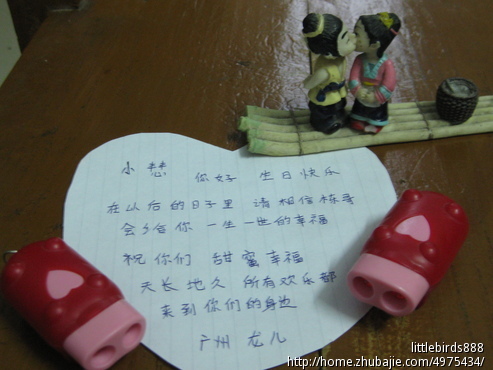 小慧 你好 生日快乐
在以后的日子里 请相信栋哥
会给你 一生一世的幸福
祝你们 甜蜜幸福
天长地久 所有欢乐都
来到你们的身边
广州 龙儿
littlebirds888
http://home.zhubajie.com/4975434/